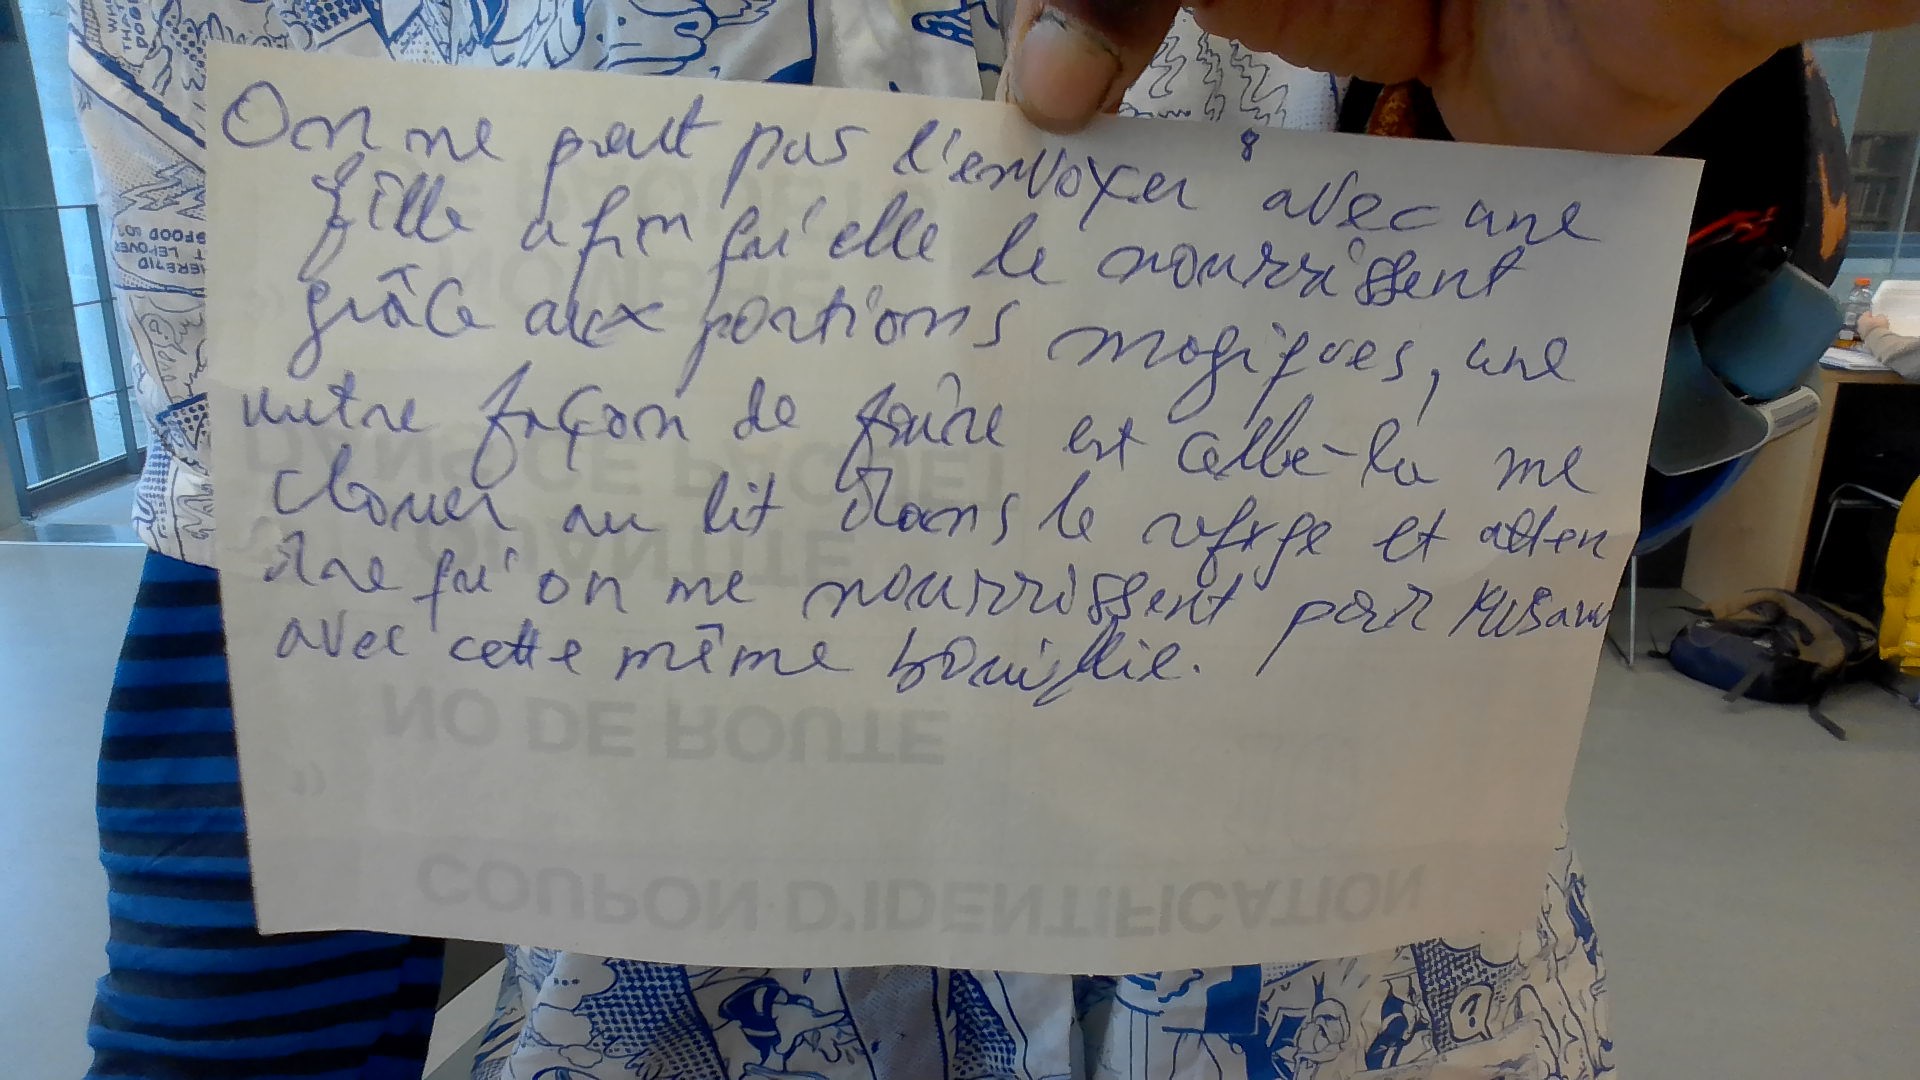 On ne peut pas l'envoyer avec une
8
fille afin qu'elle le nourrissent
grâce aux portions magiques, une
autre façon de faire est celle-là me
clouer au lit dans le refuge et atten
dre qu'on me nourrissent par
avec cette même bouillie.
DANS CE PAQUET
QUANTITE
NO DE ROUTE
COUPON D'IDENTIFICATION